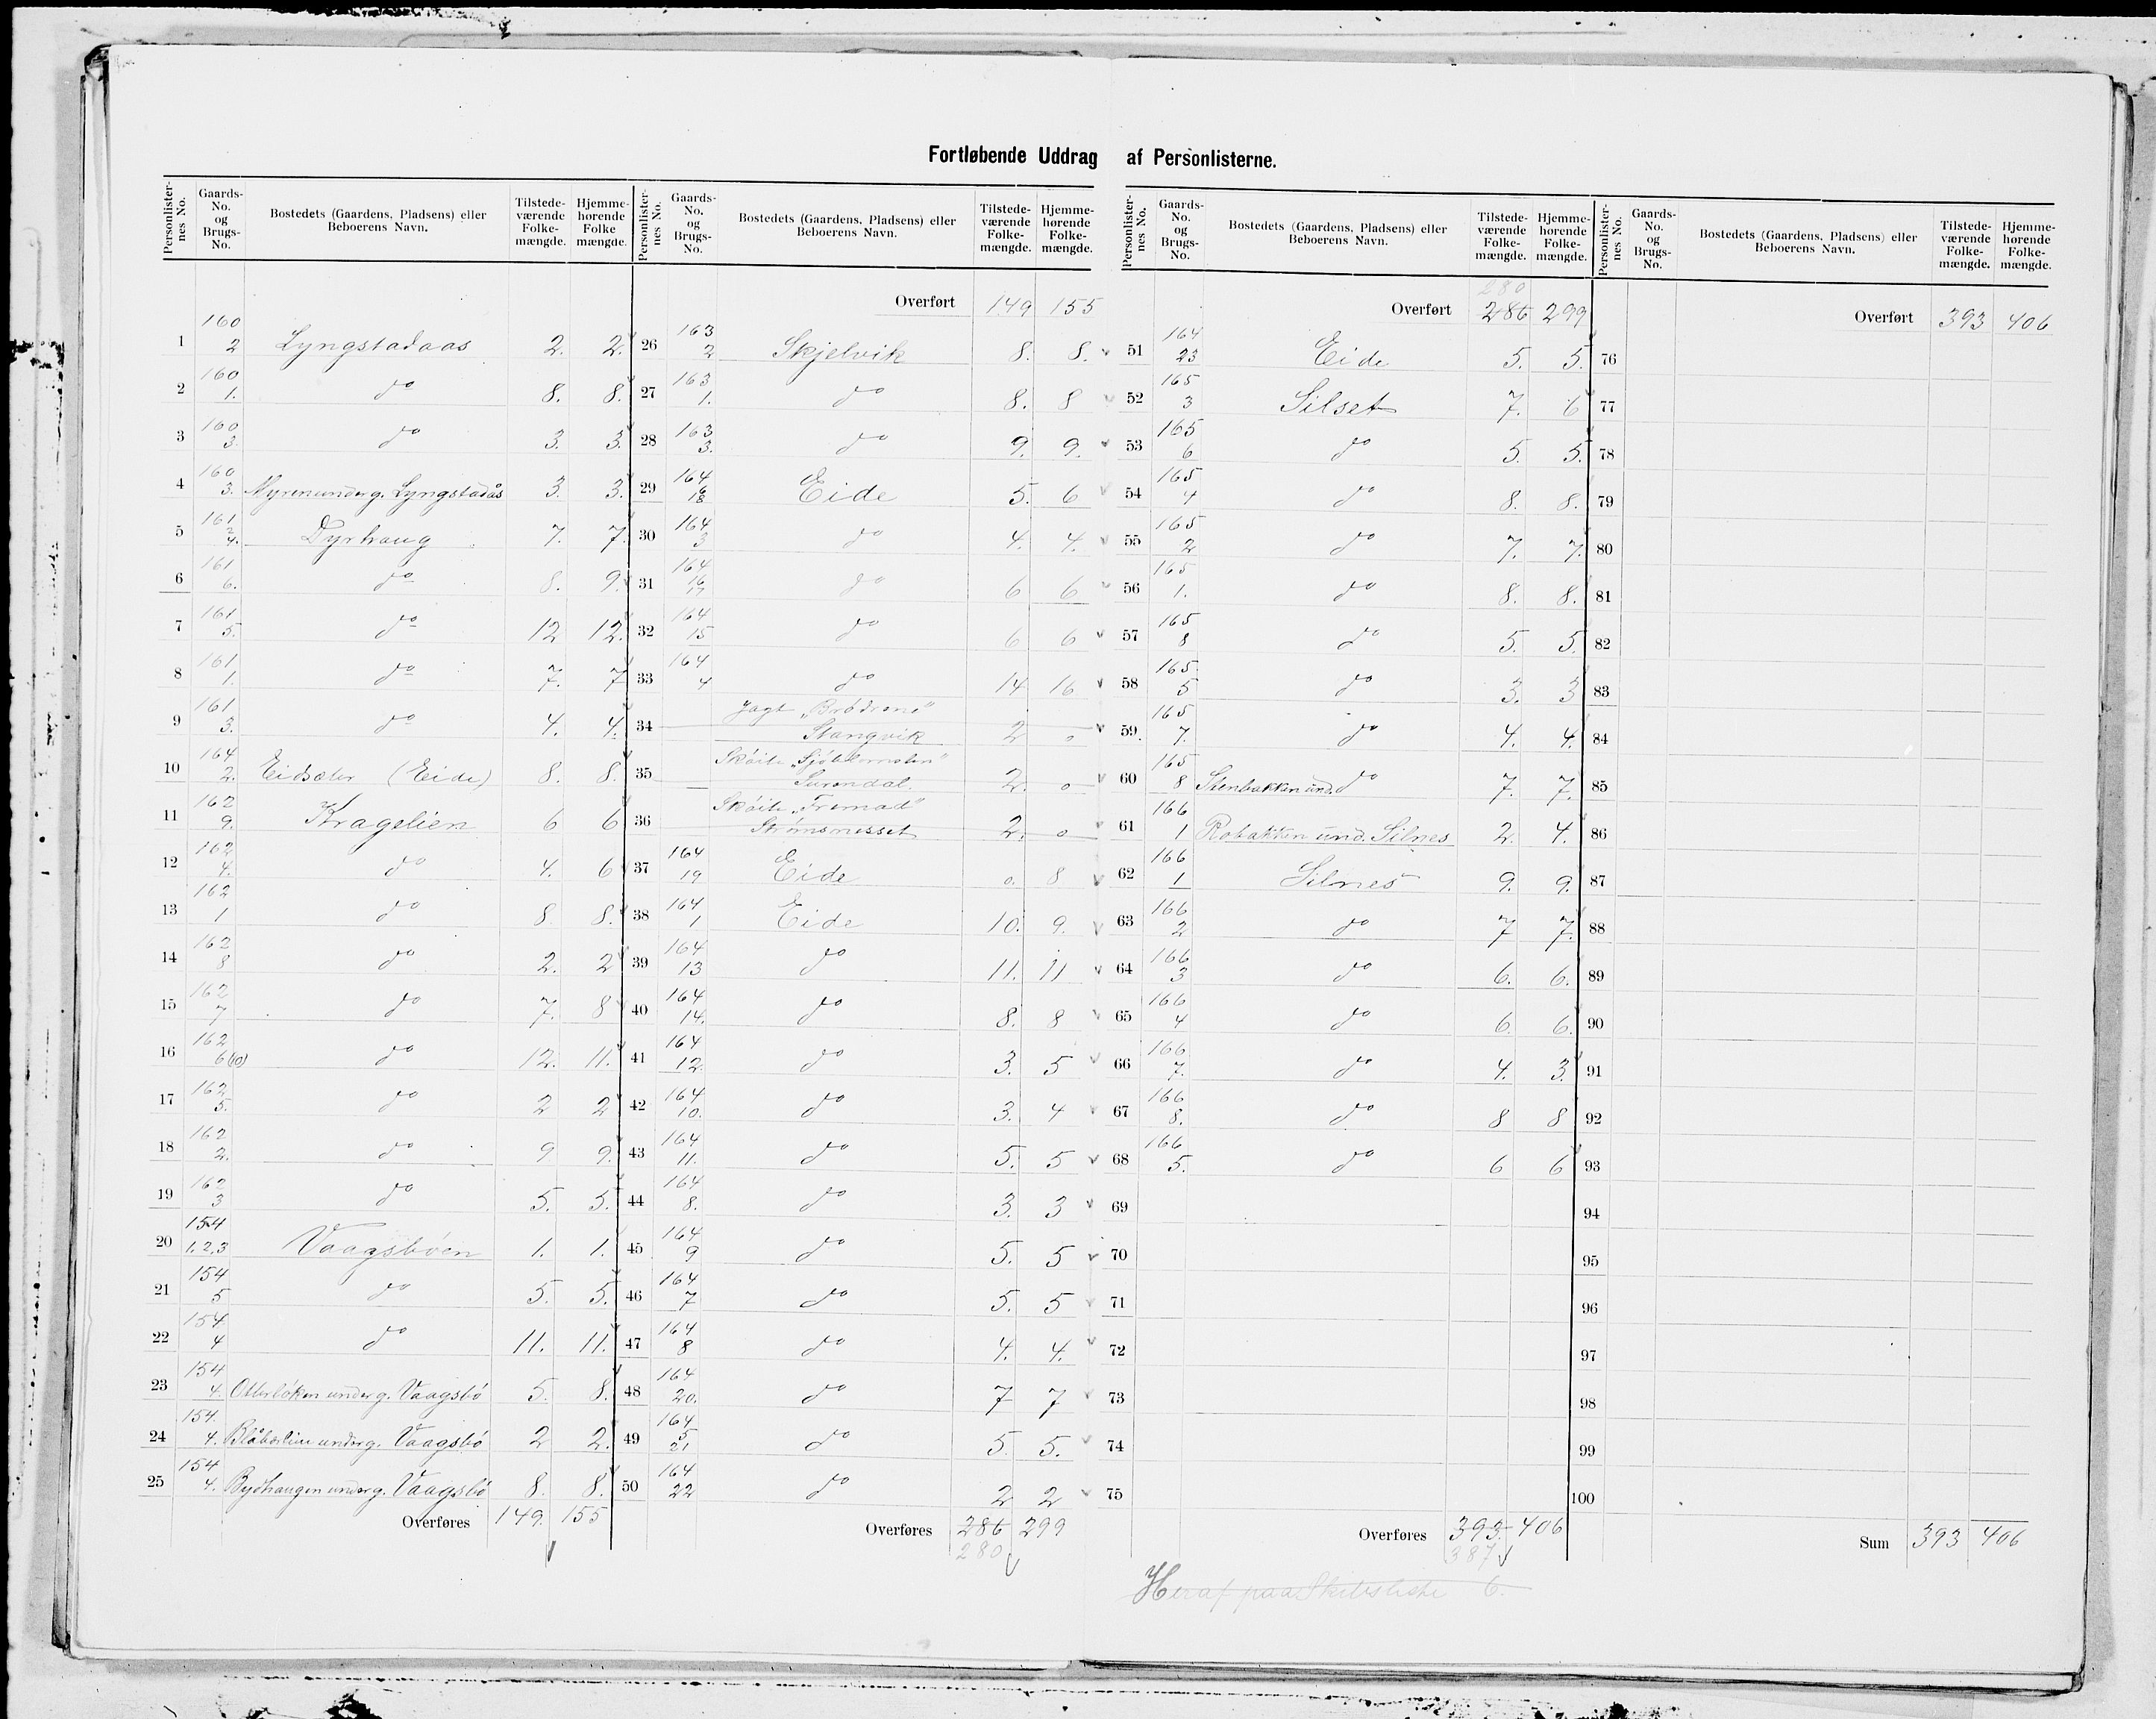 Fortløbende Uddrag af Personlisterne.
Personlisternes No. | Gaards-No. og Brugs-No. | Bostedets (Gaardens, Pladsens) eller Beboerens Navn. | Tilstedeværende Folkemængde. | Hjemmehørende Folkemængde.
1 | 160 2 | Lyngstadaas | 2. | 2.
2 | 160 1. | do | 8. | 8.
3 | 160 3. | do | 3. | 3.
4 | 160 3. | Myren underg. Lyngstadås | 3. | 3.
5 | 161 2 4. | Dyrhaug | 7. | 7.
6 | 161 6. | do | 8. | 9.
7 | 161 5. | do | 12 | 12.
8 | 161 1. | do | 7. | 7
9 | 161 3. | do | 4. | 4.
10 | 164 2. | Eidsæter (Eide) | 8. | 8.
11 | 162 9. | Kragelien | 6 | 6
12 | 162 4. | do | 4. | 6
13 | 162 1 | do | 8 | 8.
14 | 162 8 | do | 2. | 2
15 | 162 7 | do | 7. | 8
16 | 162 6(10) | do | 12. | 11.
17 | 162 5. | do | 2 | 2
18 | 162 2. | do | 9 | 9.
19 | 162 3 | do | 5. | 5.
20 | 154 1.2.3 | Vaagsbøen | 1. | 1.
21 | 154 5 | do | 5. | 5.
22 | 154 4 | do | 11. | 11.
23 | 154 4. | Otterløken underg. Vaagsbø | 5. | 8.
24 | 154. 4. | underg. Vaagsbø | 2 | 2.
25 | 154 4. | Bydhaugen underg. Vaagsbø | 8. | 8.
Overføres 149. 155
Personlisternes No. | Gaards-No. og Brugs-No. | Bostedets (Gaardens, Pladsens) eller Beboerens Navn. | Tilstedeværende Folkemængde. | Hjemmehørende Folkemængde.
Overført 149 155
26 | 163 2 | Skjelvik | 8. | 8.
27 | 163 1. | do | 8. | 8
28 | 163 3. | do | 9. | 9.
29 | 164 6 18 | Eide | 5. | 6
30 | 164 3 | do | 4. | 4.
31 | 164 16 17 | do | 6 | 6
32 | 164 15 | do | 6 | 6
33 | 164 4 | do | 14 | 16
34 | Jagt „Brødrene" Stangvik | 2 | 0
35 | Skøite Surendal. | 2. | 0
36 | Skøite „Fremad" Strømsnesset | 2. | 0
37 | 164 19 | Eide | 0. | 8
38 | 164 1 | Eide | 10. | 9.
39 | 164 13 | do | 11. | 11
40 | 164 14. | do | 8. | 8
41 | 164 12. | do | 3. | 5
42 | 164 10. | do | 3. | 4
43 | 164 11. | do | 5. | 5
44 | 164 8. | do | 3. | 3
45 | 164 9 | do | 5. | 5
46 | 164 7 | do | 5. | 5
47 | 164 8 | do | 4. | 4.
48 | 164 20. | do | 7 | 7
49 | 164 5 21 | do | 5. | 5.
50 | 164 22 | do | 2 | 2
Overføres 286 299
280
Personlisternes No. | Gaards-No. og Brugs-No. | Bostedets (Gaardens, Pladsens) eller Beboerens Navn. | Tilstedeværende Folkemængde. | Hjemmehørende Folkemængde.
280
Overført 286 299
51 | 164 23 | Eide | 5. | 5.
52 | 165 3 | Silset | 7. | 6
53 | 165 6 | do | 5. | 5.
54 | 165 4 | do | 8. | 8.
55 | 165 2 | do | 7. | 7.
56 | 165 1. | do | 8. | 8.
57 | 165 8 | do | 5. | 5.
58 | 165 5 | do | 3. | 3
59. | 165 7. | do | 4. | 4.
60 | 165 8 | Stenbakken und. do | 7. | 7.
61 | 166 1 | Robakken und. Silnes | 2. | 4.
62 | 166 1 | Silnes | 9. | 9.
63 | 166 2 | do | 7 | 7.
64 | 166 3 | do | 6. | 6.
65 | 166 4 | do | 6. | 6.
66 | 166 7. | do | 4. | 3.
67 | 166 8. | do | 8 | 8
68 | 166 5. | do | 6 | 6
69
70
71
72
73
74
75
Overføres 393. 406
387
Heraf paa Skibsliste 6.
Personlisternes No. | Gaards-No. og Brugs-No. | Bostedets (Gaardens, Pladsens) eller Beboerens Navn. | Tilstedeværende Folkemængde. | Hjemmehørende Folkemængde.
Overført 393 406
76
77
78
79
80
81
82
83
84
85
86
87
88
89
90
91
92
93
94
95
96
97
98
99
100
Sum 393 406